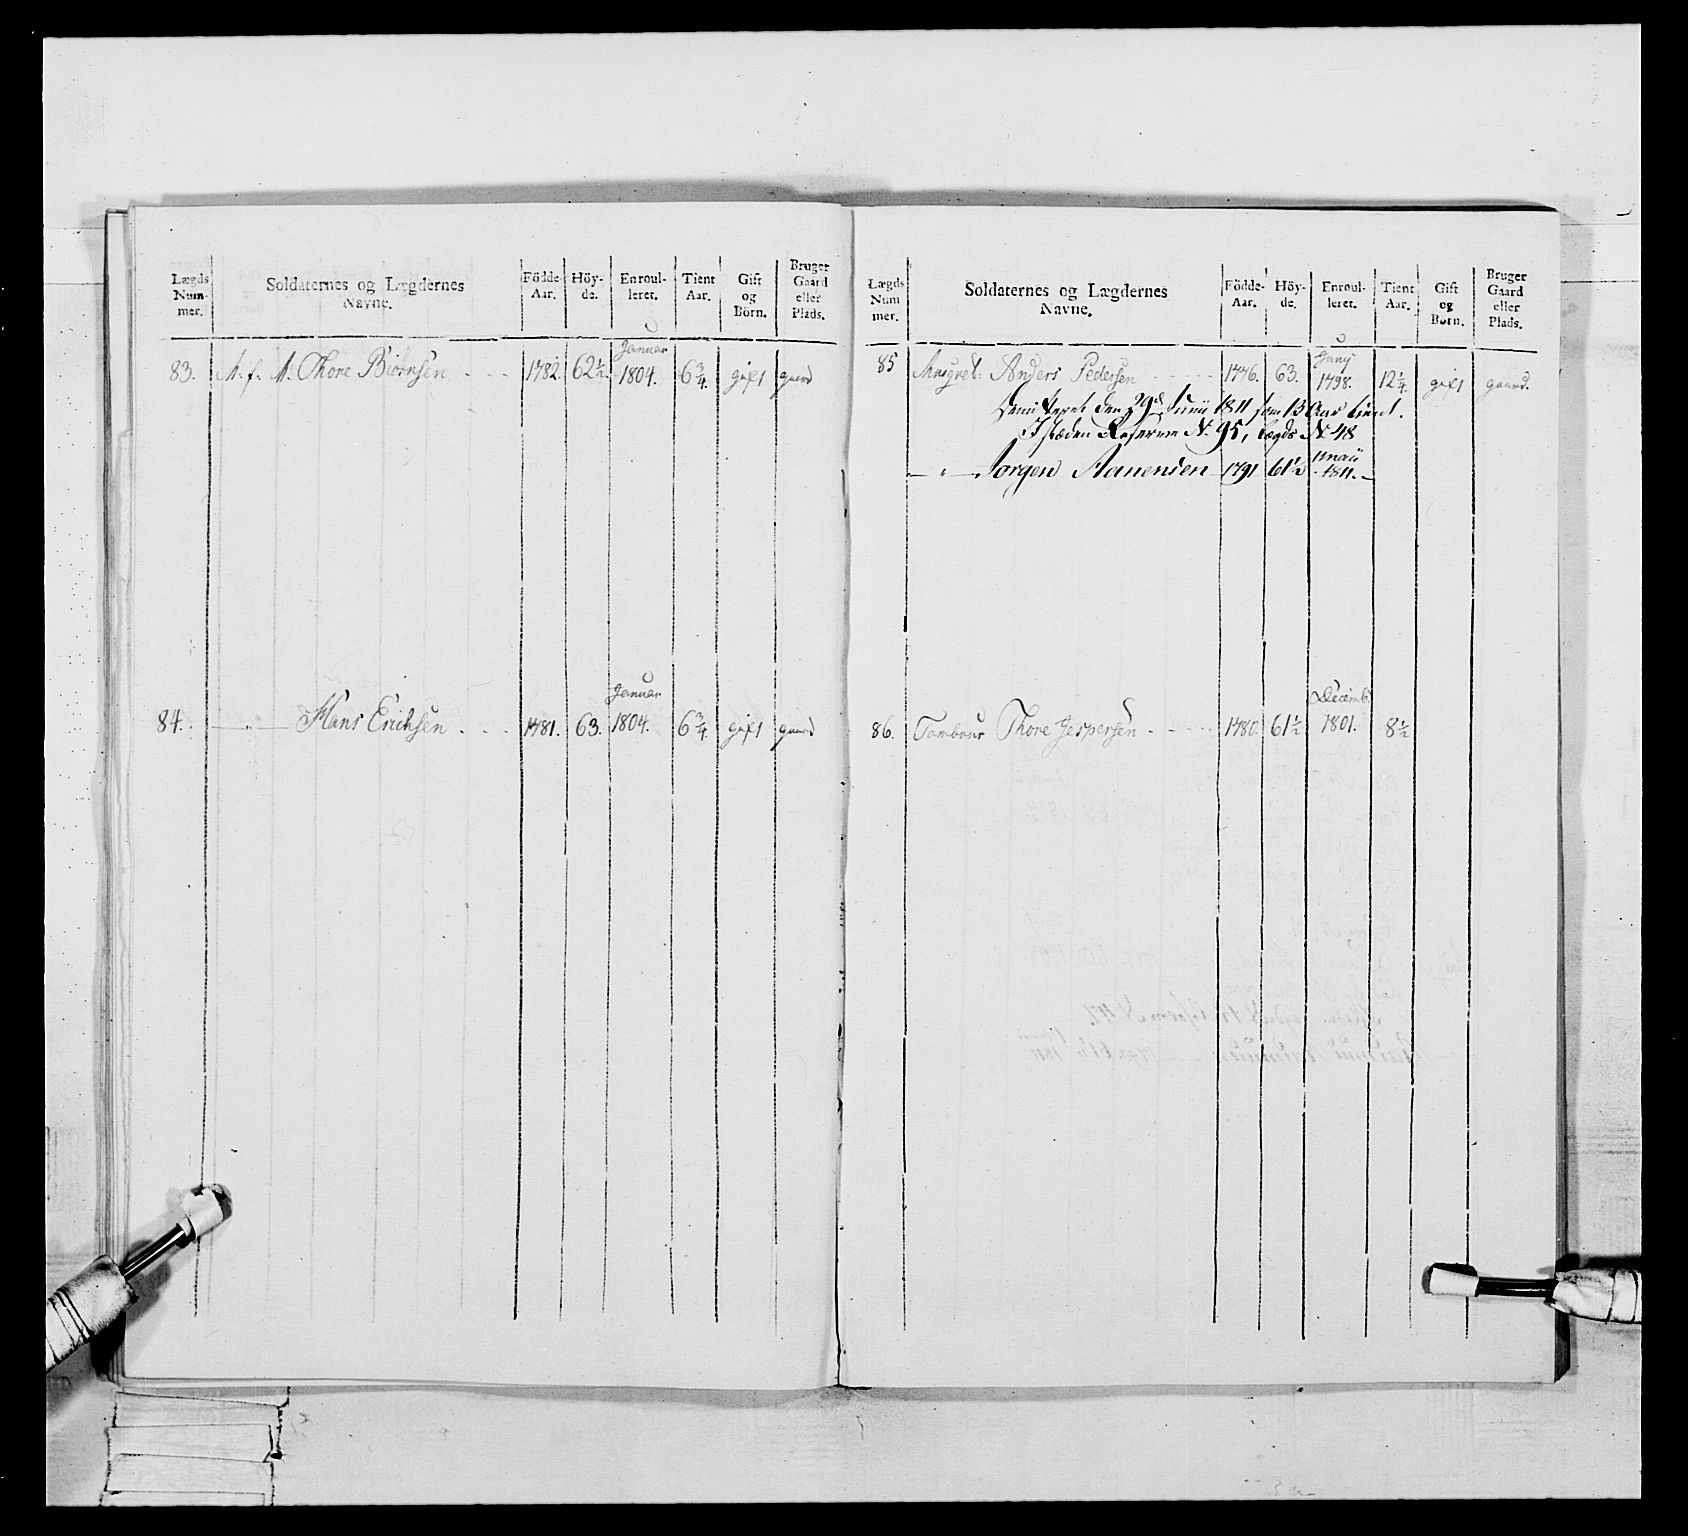 Lægds Num- mer. | Soldaternes og Lægdernes Navne. | Födde- Aar. | Höy- de. | Enroul- leret. | Tient Aar. | Gift og Börn. | Bruger Gaard eller Plads.
83. | A. f. A. Thore Biörnsen | 1782. | 62 1/2. | Januar 1804. | 6 3/4. | gift | gaard
84. | " Hans Erichsen | 1781. | 63. | Januar 1804. | 6 3/4. | gift | gaard
Lægds Num mer. | Soldaternes og Lægdernes Navne. | Födde- Aar. | Höy- de. | Enroul- leret. | Tient Aar. | Gift og Børn. | Bruger Gaard eller Plads.
85 | Musqvet: Anders Pedersen | 1776. | 63. | Juny 1798. | 12 1/4. | gift | gaard.
Demitteret den 29de Junii 1811 som 13 Aar tient.
I stæden Reserven No. 95, Lægds No 48
" Jörgen Aanensen | 1791 | 61 1/2 | 1811.
86. | Tambour Thore Jespersen | 1780. | 61 1/2 | Decemb. 1801. | 8 1/2